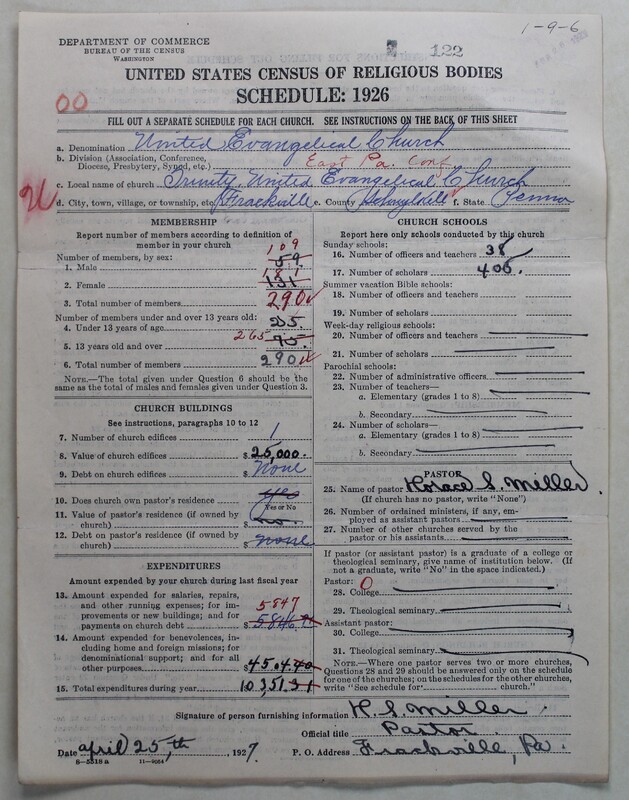 1-9-6
DEPARTMENT OF COMMERCE
BUREAU OF THE CENSUS
WASHINGTON
122
UNITED STATES CENSUS OF RELIGIOUS BODIES
SCHEDULE: 1926
00
FILL OUT A SEPARATE SCHEDULE FOR EACH CHURCH. SEE INSTRUCTIONS ON THE BACK OF THIS SHEET
a. Denomination United Evangelical Church
b. Division (Association, Conference, Diocese, Presbytery, Synod, etc.) East Pa. Conf
c. Local name of church Trinity United Evangelical Church
d. City, town, village, or township, etc. Frackville e. County Schuylkill f. State Penna
MEMBERSHIP
Report number of members according to definition of member in your church
Number of members, by sex:
109
1. Male 59
181
2. Female 131
3. Total number of members 290
Number of members under and over 13 years old:
4. Under 13 years of age 25.
5. 13 years old and over 265 95.
6. Total number of members 290
NOTE.—The total given under Question 6 should be the same as the total of males and females given under Question 3.
CHURCH BUILDINGS
See instructions, paragraphs 10 to 12
7. Number of church edifices 1
8. Value of church edifices $25,000.
9. Debt on church edifices $ None
10. Does church own pastor's residence yes
Yes or No
11. Value of pastor's residence (if owned by church) $ no.
12. Debt on pastor's residence (if owned by church) $ none
EXPENDITURES
Amount expended by your church during last fiscal year
13. Amount expended for salaries, repairs, and other running expenses; for improvements or new buildings; and for payments on church debt $
5847
14. Amount expended for benevolences, including home and foreign missions; for denominational support; and for all other purposes $4504.40
15. Total expenditures during year 10351.31
CHURCH SCHOOLS
Report here only schools conducted by this church
Sunday schools:
16. Number of officers and teachers 38
17. Number of scholars 406.
Summer vacation Bible schools:
18. Number of officers and teachers
19. Number of scholars
Week-day religious schools:
20. Number of officers and teachers
21. Number of scholars
Parochial schools:
22. Number of administrative officers
23. Number of teachers—
a. Elementary (grades 1 to 8)
b. Secondary
24. Number of scholars—
a. Elementary (grades 1 to 8)
b. Secondary
PASTOR
25. Name of pastor Horace S. Miller.
(If church has no pastor, write "None")
26. Number of ordained ministers, if any, employed as assistant pastors
27. Number of other churches served by the pastor or his assistants
If pastor (or assistant pastor) is a graduate of a college or theological seminary, give name of institution below. (If not a graduate, write "No" in the space indicated.)
Pastor: 0
28. College
29. Theological seminary
Assistant pastor:
30. College
31. Theological seminary
NOTE.—Where one pastor serves two or more churches, Questions 28 and 29 should be answered only on the schedule for one of the churches; on the schedules for the other churches, write "See schedule for church."
Signature of person furnishing information H. S. Miller
Official title Pastor
Date April 25,th, 1927. P. O. Address Frackville, Pa.
8—5518 a 11—9054